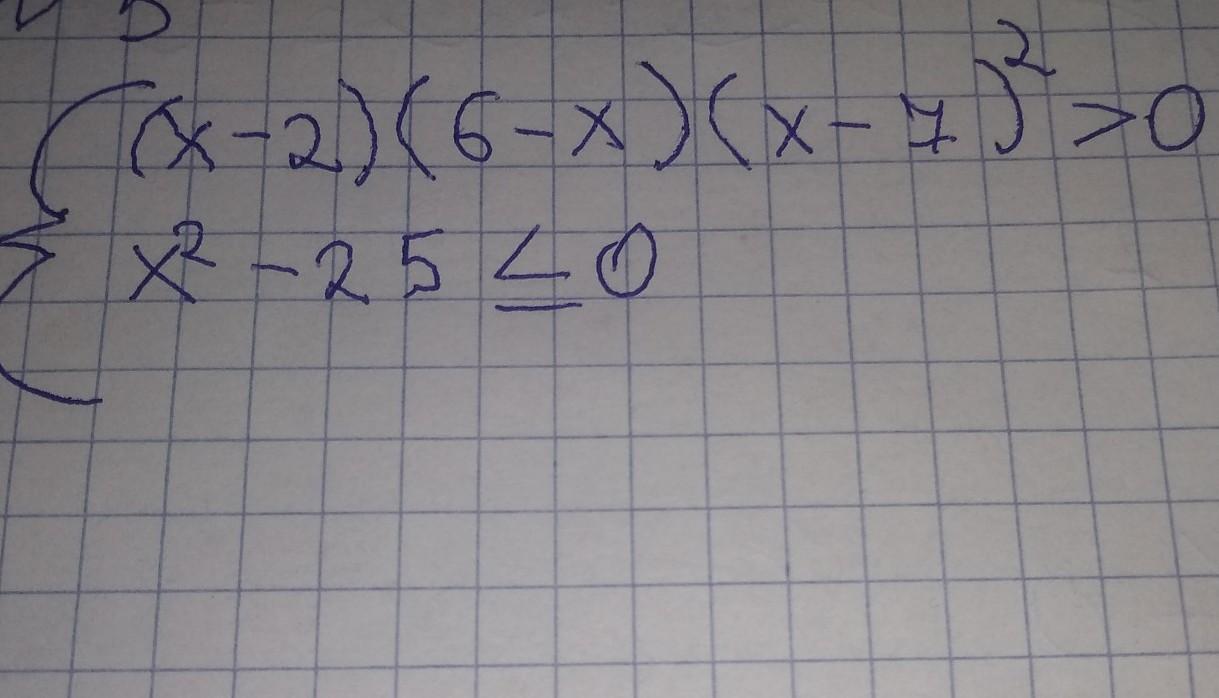 (x-2)(6-x)(x-7)² >0
x²-25 ≤ 0